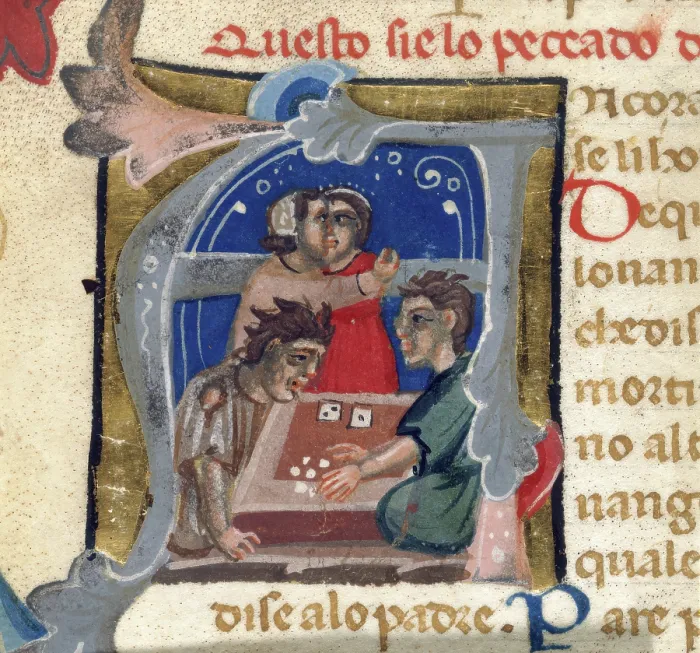 Questo sie lo peccado d
A
se li ho
Dequ
lo nan
che dis
morti
no al
nang
quale
dise alo padre. Pare p